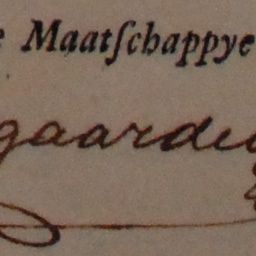 e Maatſchappye
gaarde